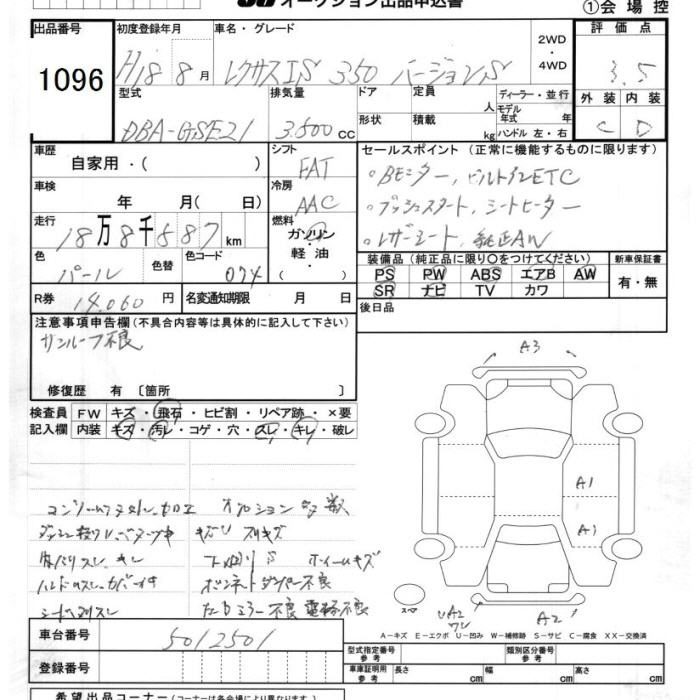 オークション出品申込書
①会場控
出品番号 初度登録年月 車名・グレード 2WD ・ 4WD 評価点
1096 H18 8月 レクサスIS 350 バージョンS 3.5
型式 排気量 ドア 定員 人 ディーラー・並行 外装 内装
モデル年式 年
DBA-GSE21 3.500cc 形状 積載 kg ハンドル 左・右 C D
車歴 自家用・( ) シフト FAT セールスポイント (正常に機能するものに限ります)
車検 年 月( 日) 冷房 AAC 。Bモニター, ビルトインETC
。プッシュスタート, シートヒーター
走行 18万8千587km 燃料 ガソリン・軽油・( ) 。レザーシート, 純正AW
色 パール 色替 色コード 074 装備品 (純正品に限り○をつけてください) 新車保証書
PS PW ABS エアB AW 有・無
SR ナビ TV カワ
R券 14,060円 名変通知期限 月 日 後日品
注意事項申告欄 (不具合内容等は具体的に記入して下さい)
サンルーフ不良
修復歴 有 〔箇所 〕
検査員記入欄 FW キズ・飛石・ヒビ割・リペア跡・×要
内装 キズ・汚レ・コゲ・穴・スレ・キレ・破レ
A3
A1
A1
オプション
キズ
ホイールキズ
ボンネットダンパー不良
不良
UA2
A2
スペ
A-キズ E-エクボ U-凹み W-補修跡 S-サビ C-腐食 XX-交換済
車台番号 5012501
登録番号
型式指定番号 参考 類別区分番号 参考
車庫証明用 参考 長さ cm 幅 cm 高さ cm
希望出品コーナー (コーナーは各会場により異なります)